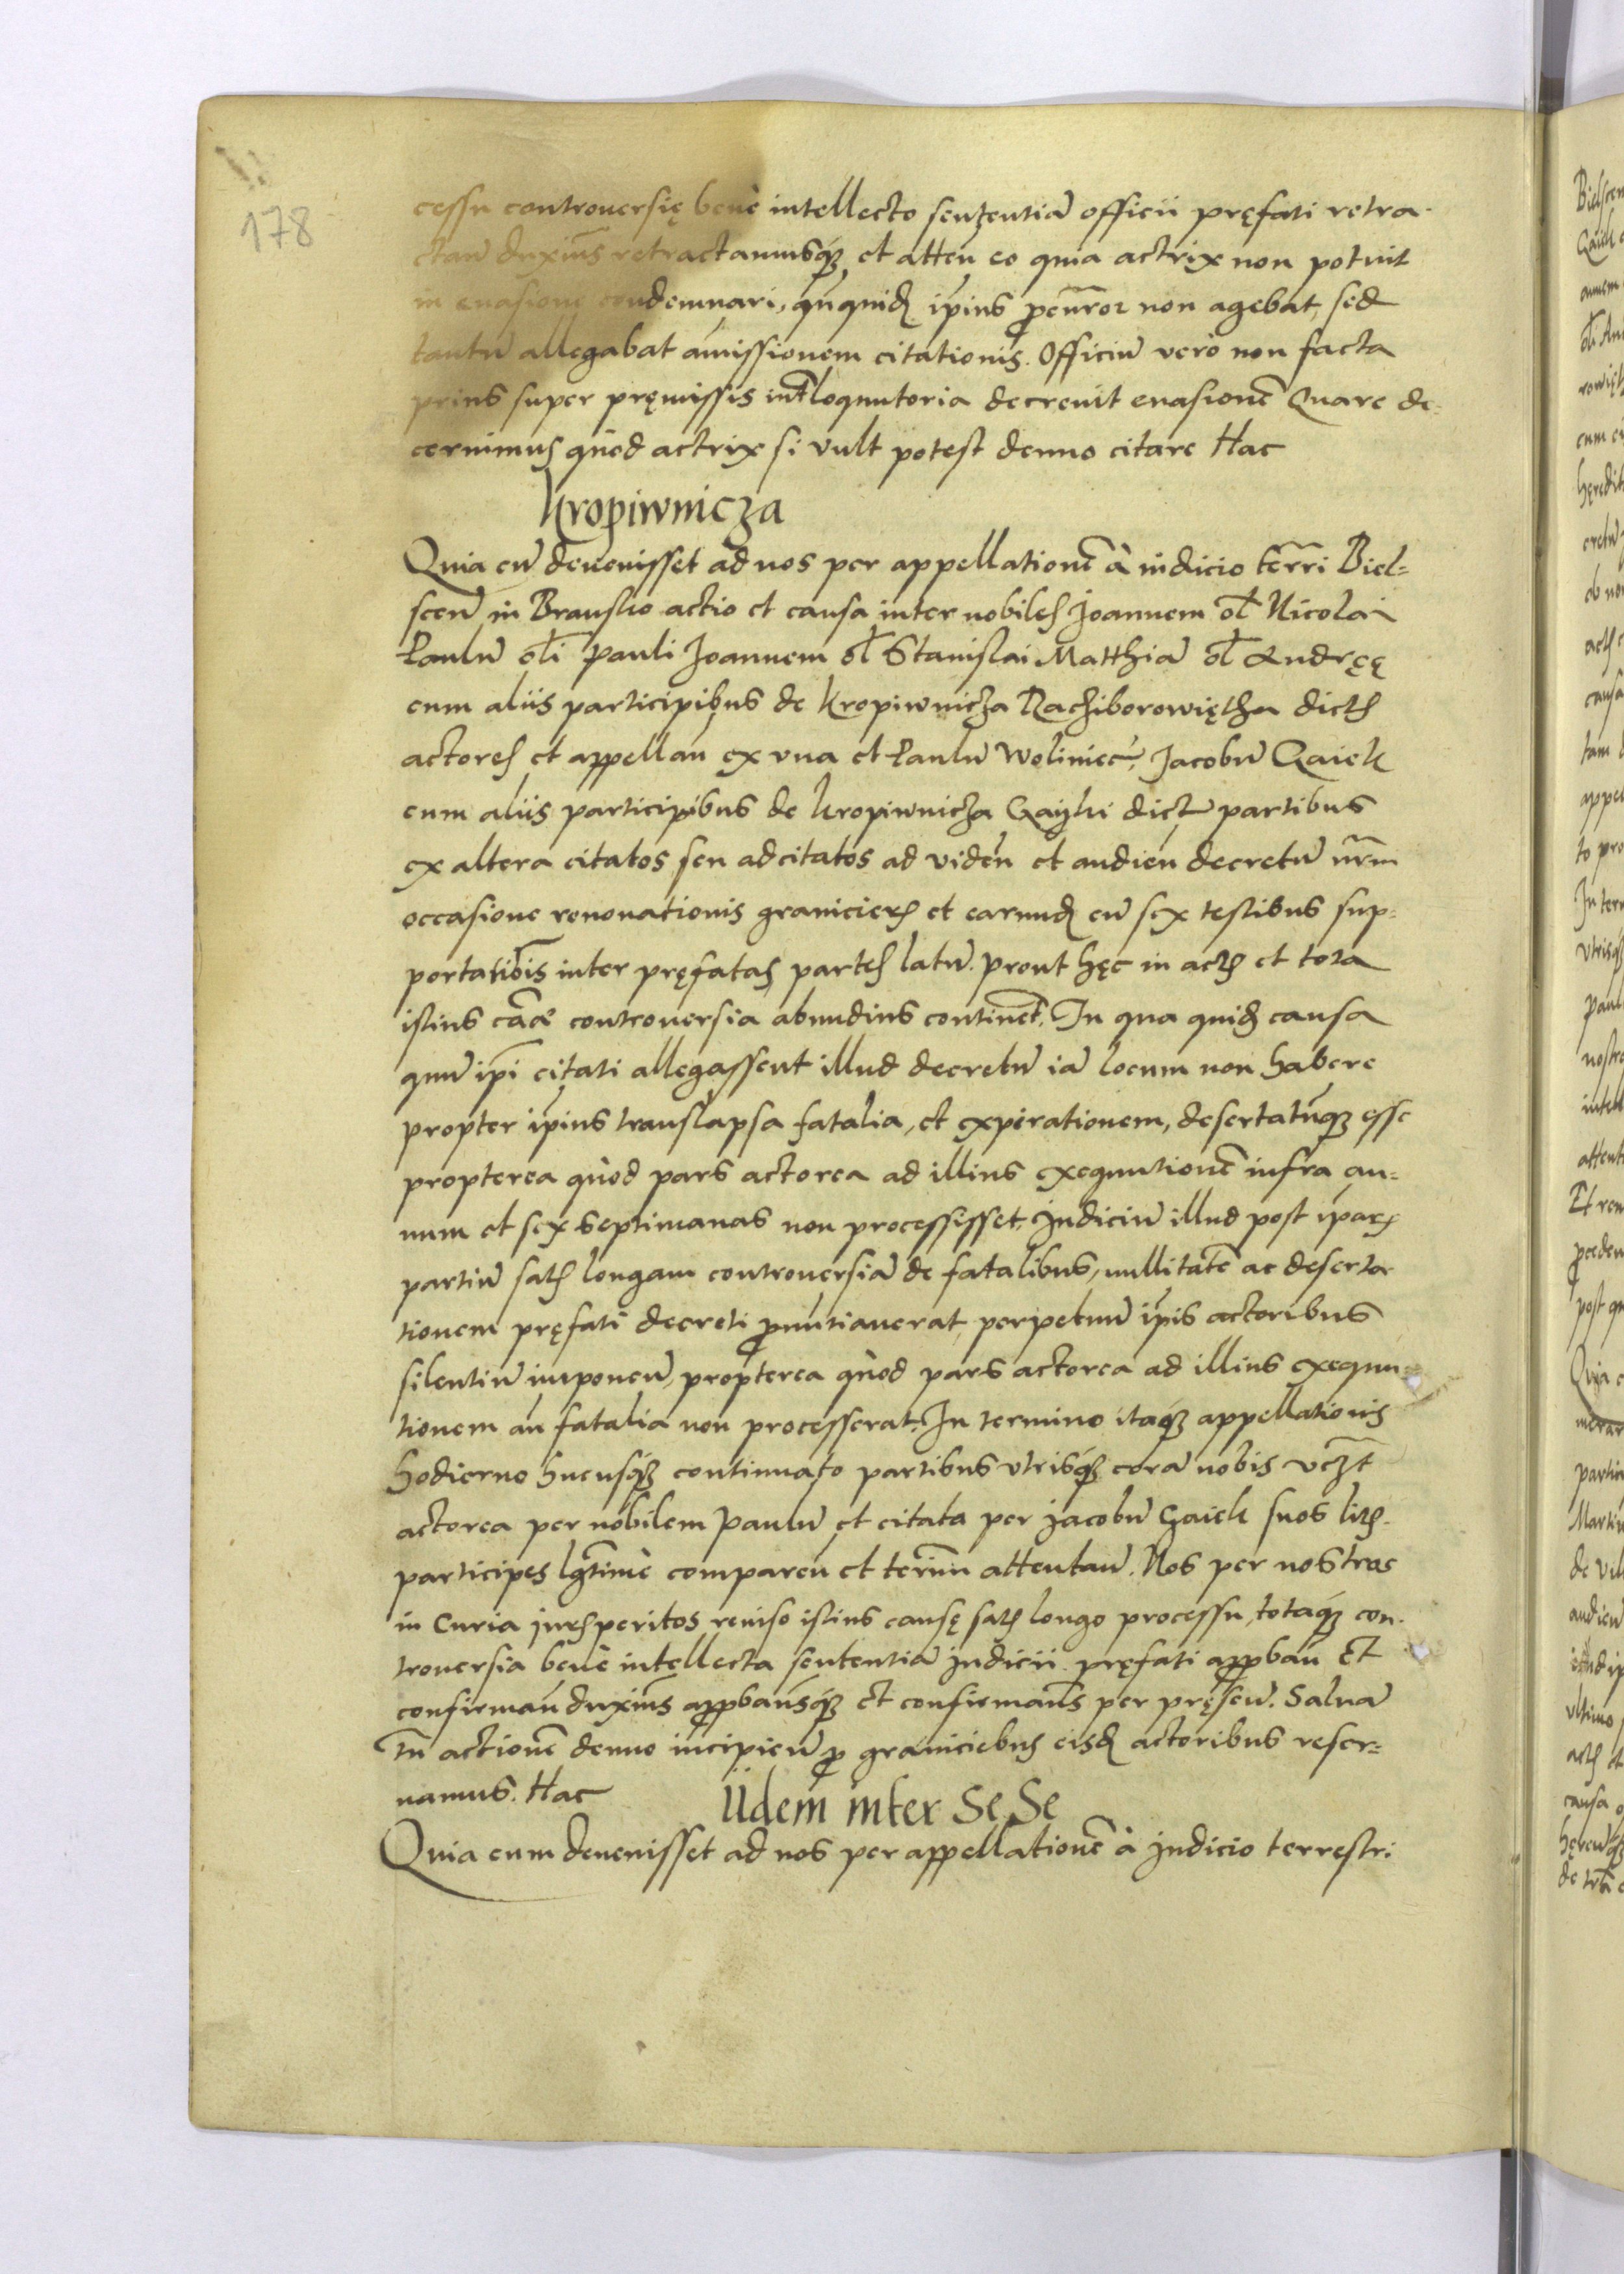 178
cessu controuersię benè intellecto sententiā officii pręfati retra-
ctan̄ duxim̄s retractamusq꜄ et atten̄ eo quia actrix non potuit
in euasione condemnari, qn̄quid꜄ ip̄ius ꝓcūror non agebat, sed
tantū allegabat amissionem citationis. Officiū verò non facta
prius super pręmissis int̄loquutoria decreuit euasionē Quare de-
cernimus quòd actrix si vult potest denuo citare Hac
Kropiwnicza
Quia cū deuenisset ad nos per appellationē à iudicio terr̄i Biel=
scen̄ in Bransko actio et causa inter nobiles Joannem ol̄ Nicolai
Paulū ol̄i Pauli Joannem ol̄ Stanislai Matthiā ol̄ Andręę
cum aliis participibus de Kropiwnicza Racziborowiętha dictꝭ
actores et appellan̄ ex vna et Paulū Woliniec, Jacobū Gaiek
cum aliis participibus de Kropiwnicza Gayki dict partibus
ex altera citatos seu adcitatos ad viden̄ et audien̄ decretū nr̄m
occasione renouationis granicierꝝ et earund꜄ cū sex testibus sup-
portatiōis inter pręfatas partes latū. prout hęc in actꝭ et tota
istius cāę controuersia abundius continēt. In qua quid꜄ causa
quū ip̄i citati allegassent illud decretū iā locum non habere
propter ip̄ius translapsa fatalia, et expirationem, desertatūq꜄ esse
propterea quòd pars actorea ad illius exequutionē infra an-
num et sex septimanas non processisset, Judiciū illud post ip̄arꝝ
partiū satꝭ longam controuersiā de fatalibus, nullitatē ac deserta-
tionem pręfati decreti ꝓnūtiauerat, perpetuū ip̄is actoribus
silentiū imponen̄, propterea quòd pars actorea ad illius exequu-
tionem an̄ fatalia non processerat. In termino itaq꜄ appellationis
hodierno hucusq꜄ continuato partibus vtrisq꜄ corā nobis vcz̄t
actorea per nobilem Paulū et citata per Jacobū Gaiek suos litꝭ-
participes lḡtimè comparen̄ et term̄m attentan̄. Nos per nostros
in Curia jurꝭperitos reuiso istius causę satꝭ longo processu, totaq꜄ con-
trouersia benè intellecta sententiā judicii pręfati apꝓban̄ Et
confirman̄ duxim̄s apꝓbam̄sq꜄ et confirmam̄s per pręsen̄. Salua
tn̄ actionē denuo incipien̄ ꝓ graniciebus eisd꜄ actoribus reser=
uamus. Hac
Iidem inter Se Se
Quia cum deuenisset ad nos per appellationē à judicio terrestri